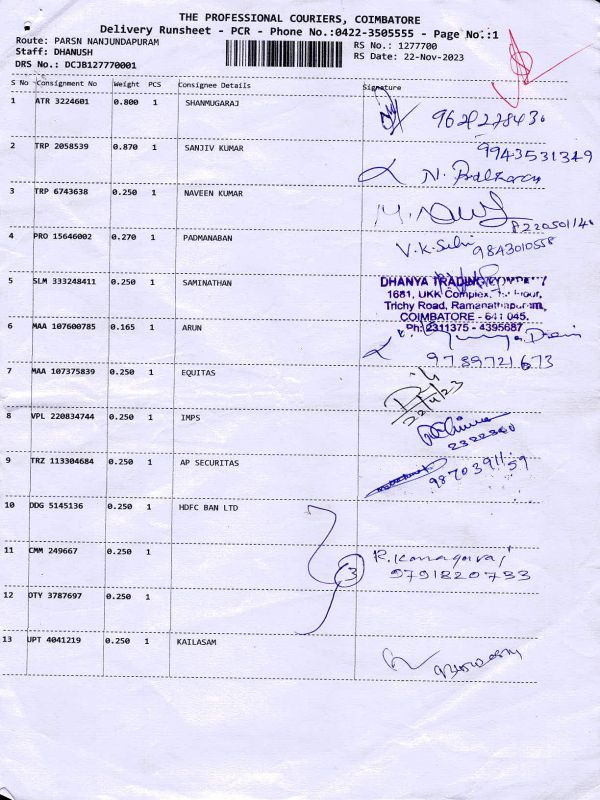 THE PROFESSIONAL COURIERS, COIMBATORE
Delivery Runsheet - PCR - Phone No.:0422-3505555 - Page No.:1
Route: PARSN NANJUNDAPURAM
RS No.: 1277700
Staff: DHANUSH
RS Date: 22-Nov-2023
DRS No.: DCJB127770001
S No Consignment No Weight PCS Consignee Details Signature
1 ATR 3224601 0.800 1 SHANMUGARAJ
2 TRP 2058539 0.870 1 SANJIV KUMAR 9943531349
N.
3 TRP 6743638 0.250 1 NAVEEN KUMAR
4 PRO 15646002 0.270 1 PADMANABAN
V.K. 9843010558
5 SLM 333248411 0.250 1 SAMINATHAN
DHANYA TRADING
1681, UKK Complex,
Trichy Road, Ramanathapuram,
COIMBATORE - 641 045.
Ph: 2311375 - 4395687
6 MAA 107600785 0.165 1 ARUN
9789721673
7 MAA 107375839 0.250 1 EQUITAS
8 VPL 220834744 0.250 1 IMPS
9 TRZ 113304684 0.250 1 AP SECURITAS
10 DDG 5145136 0.250 1 HDFC BAN LTD
11 CMM 249667 0.250 1
3 R. Kanagaraj
9791820733
12 OTY 3787697 0.250 1
13 UPT 4041219 0.250 1 KAILASAM